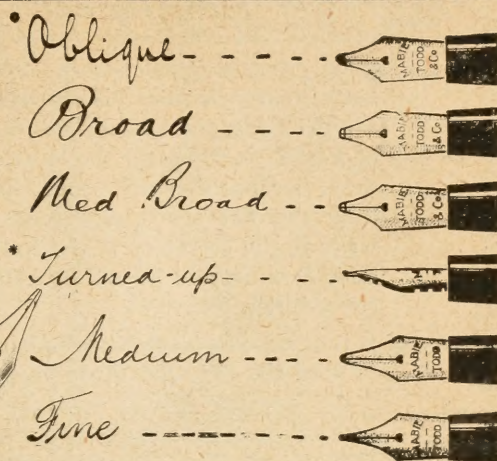 * Oblique - - - - MABIE TODD & Co
Broad - - - - MABIE TODD & Co
Med Broad - - - MABIE TODD & Co
* Turned-up - - - -
Medium - - - - MABIE TODD
Fine - - - - MABIE TODD